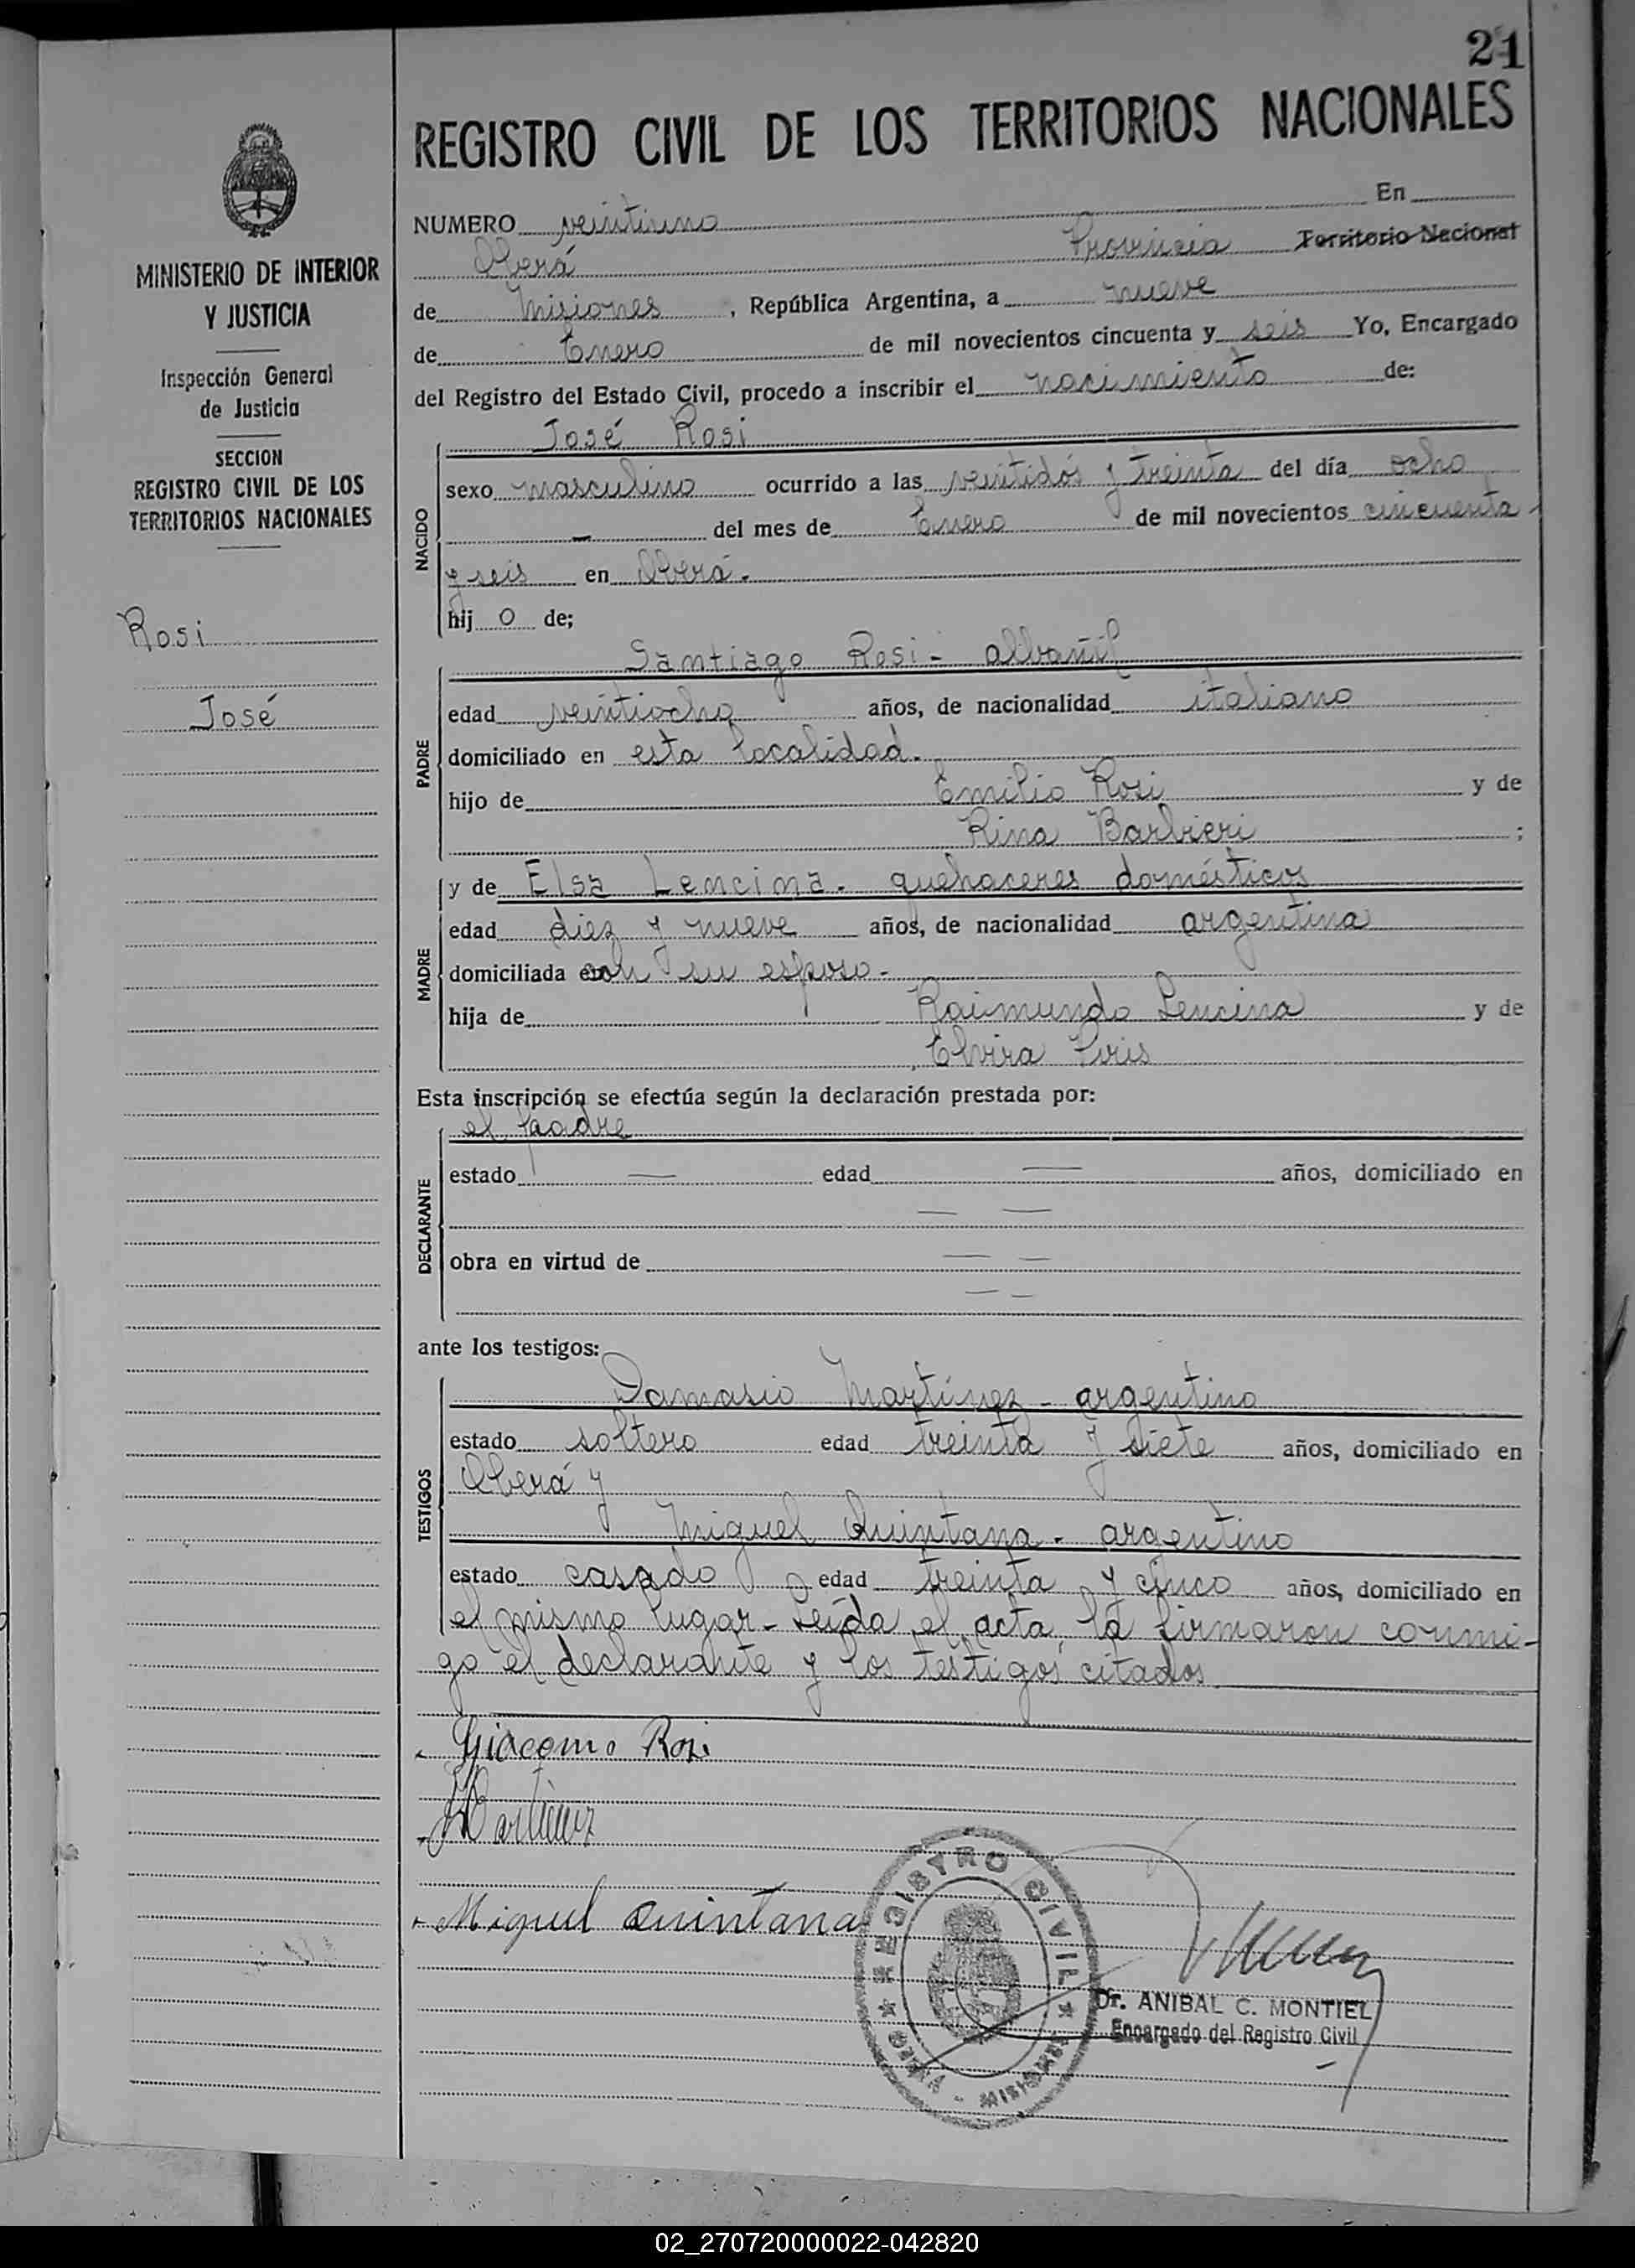 21
REGISTRO CIVIL DE LOS TERRITORIOS NACIONALES
MINISTERIO DE INTERIOR
Y JUSTICIA
Inspección General
de Justicia
SECCION
REGISTRO CIVIL DE LOS
TERRITORIOS NACIONALES
Rosi
José
NUMERO veintiuno En
Oberá Provincia Territorio Nacional
de Misiones, República Argentina, a nueve
de Enero de mil novecientos cincuenta y seis Yo, Encargado
del Registro del Estado Civil, procedo a inscribir el nacimiento de:
NACIDO
José Rosi
sexo masculino ocurrido a las veintidós y treinta del día ocho
— del mes de Enero de mil novecientos cincuenta
y seis en Oberá.
hij o de;
PADRE
Santiago Rosi - albañil
edad veintiocho años, de nacionalidad italiano
domiciliado en esta localidad.
hijo de Emilio Rosi y de
Rina Barbieri ;
MADRE
y de Elsa Lencina - quehaceres domésticos
edad diez y nueve años, de nacionalidad argentina
domiciliada con su esposo -
hija de Raimundo Lencina y de
Elvira Piris
Esta inscripción se efectúa según la declaración prestada por:
DECLARANTE
el padre
estado — edad — años, domiciliado en
— —
obra en virtud de — —
— —
ante los testigos:
TESTIGOS
Damasio Martínez - argentino
estado soltero edad treinta y siete años, domiciliado en
Oberá y
Miguel Quintana - argentino
estado casado edad treinta y cinco años, domiciliado en
el mismo lugar - Leída el acta, la firmaron conmi-
go el declarante y los testigos citados
Giacomo Rosi
DMartinez
Miguel Quintana
REGISTRO CIVIL
OBERA - MISIONES
Dr. ANIBAL C. MONTIEL
Encargado del Registro Civil
02_270720000022-042820